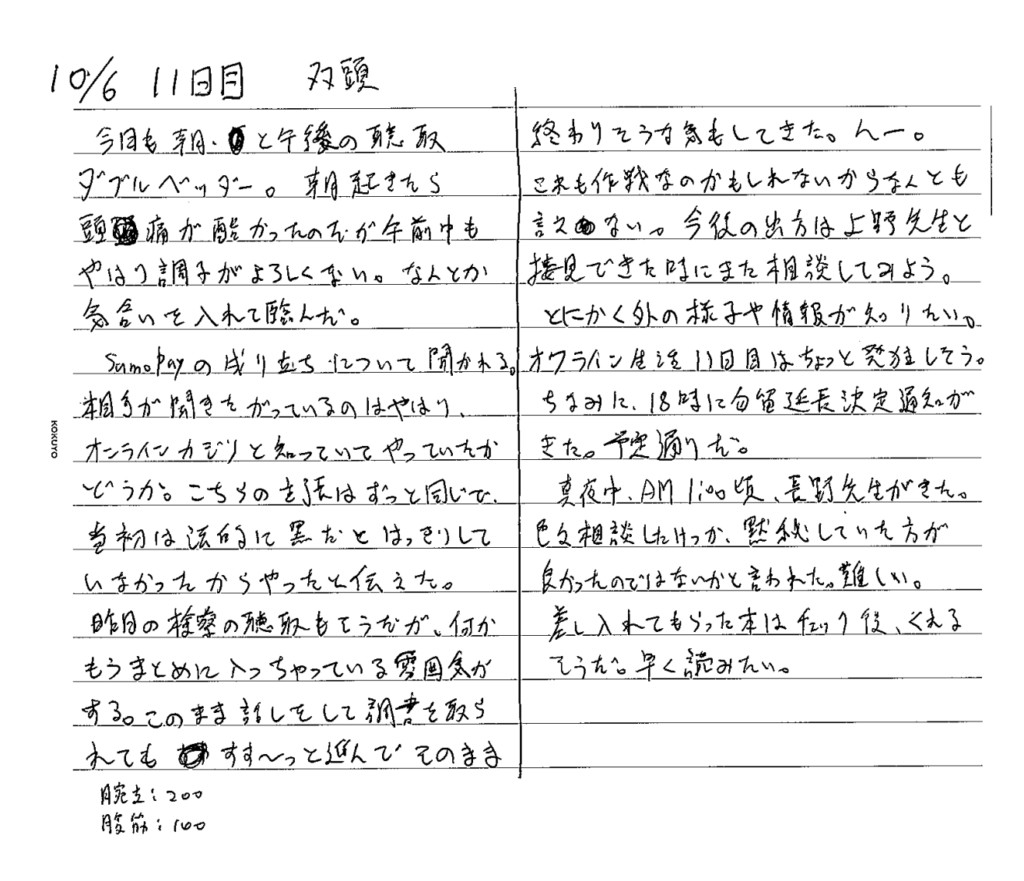 10/6 11日目 双頭
今日も朝・と午後の聴取
ダブルヘッダー。朝起きたら
頭痛が酷かったのだが午前中も
やはり調子がよろしくない。なんとか
気合いを入れて臨んだ。
SumoPayの成り立ちについて聞かれる。
相手が聞きたがっているのはやはり、
オンラインカジノと知っていてやっていたか
どうか。こちらの主張はずっと同じで、
当初は法的に黒だとはっきりして
いなかったからやったと伝えた。
昨日の検察の聴取もそうだが、何か
もうまとめに入っちゃっている雰囲気が
する。このまま話しをして調書を取ら
れても すす〜っと進んでそのまま
腕立:200
腹筋:100
終わりそうな気もしてきた。んー。
これも作戦なのかもしれないからなんとも
言えない。今後の出方は上野先生と
接見できた時にまた相談してみよう。
とにかく外の様子や情報が知りたい。
オフライン生活11日目はちょっと発狂しそう。
ちなみに、18時に勾留延長決定通知が
きた。予定通りだ。
真夜中、AM1:00頃、長野先生がきた。
色々相談したけっか、黙秘していた方が
良かったのではないかと言われた。難しい。
差し入れてもらった本はチェック後、くれる
そうだ。早く読みたい。
KOKUYO